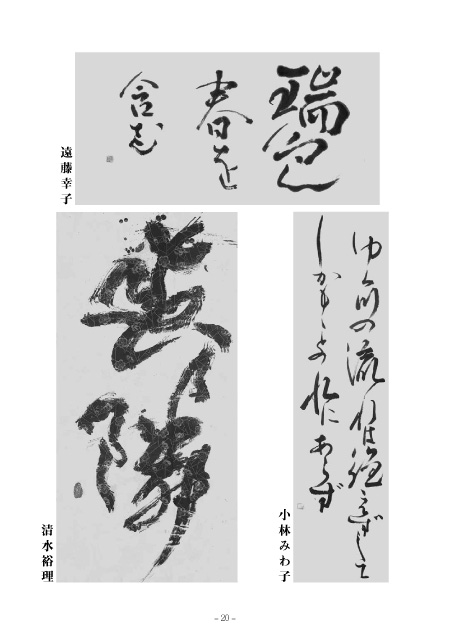 瑞色
春を
含む
遠藤幸子
ゆく河の流れは絶えずして
しかももとの水にあらず
小林みわ子
清水裕理
– 20 –